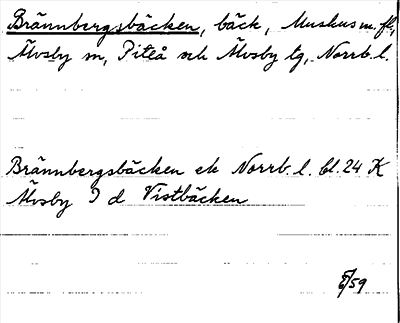 Brännbergsbäcken, bäck, Muskus m. fl,
Älvsby sn, Piteå och Älvsby tg, Norrb. l.
Brännbergsbäcken ek Norrb. l. bl. 24 K
Älvsby I d Vistbäcken
/59